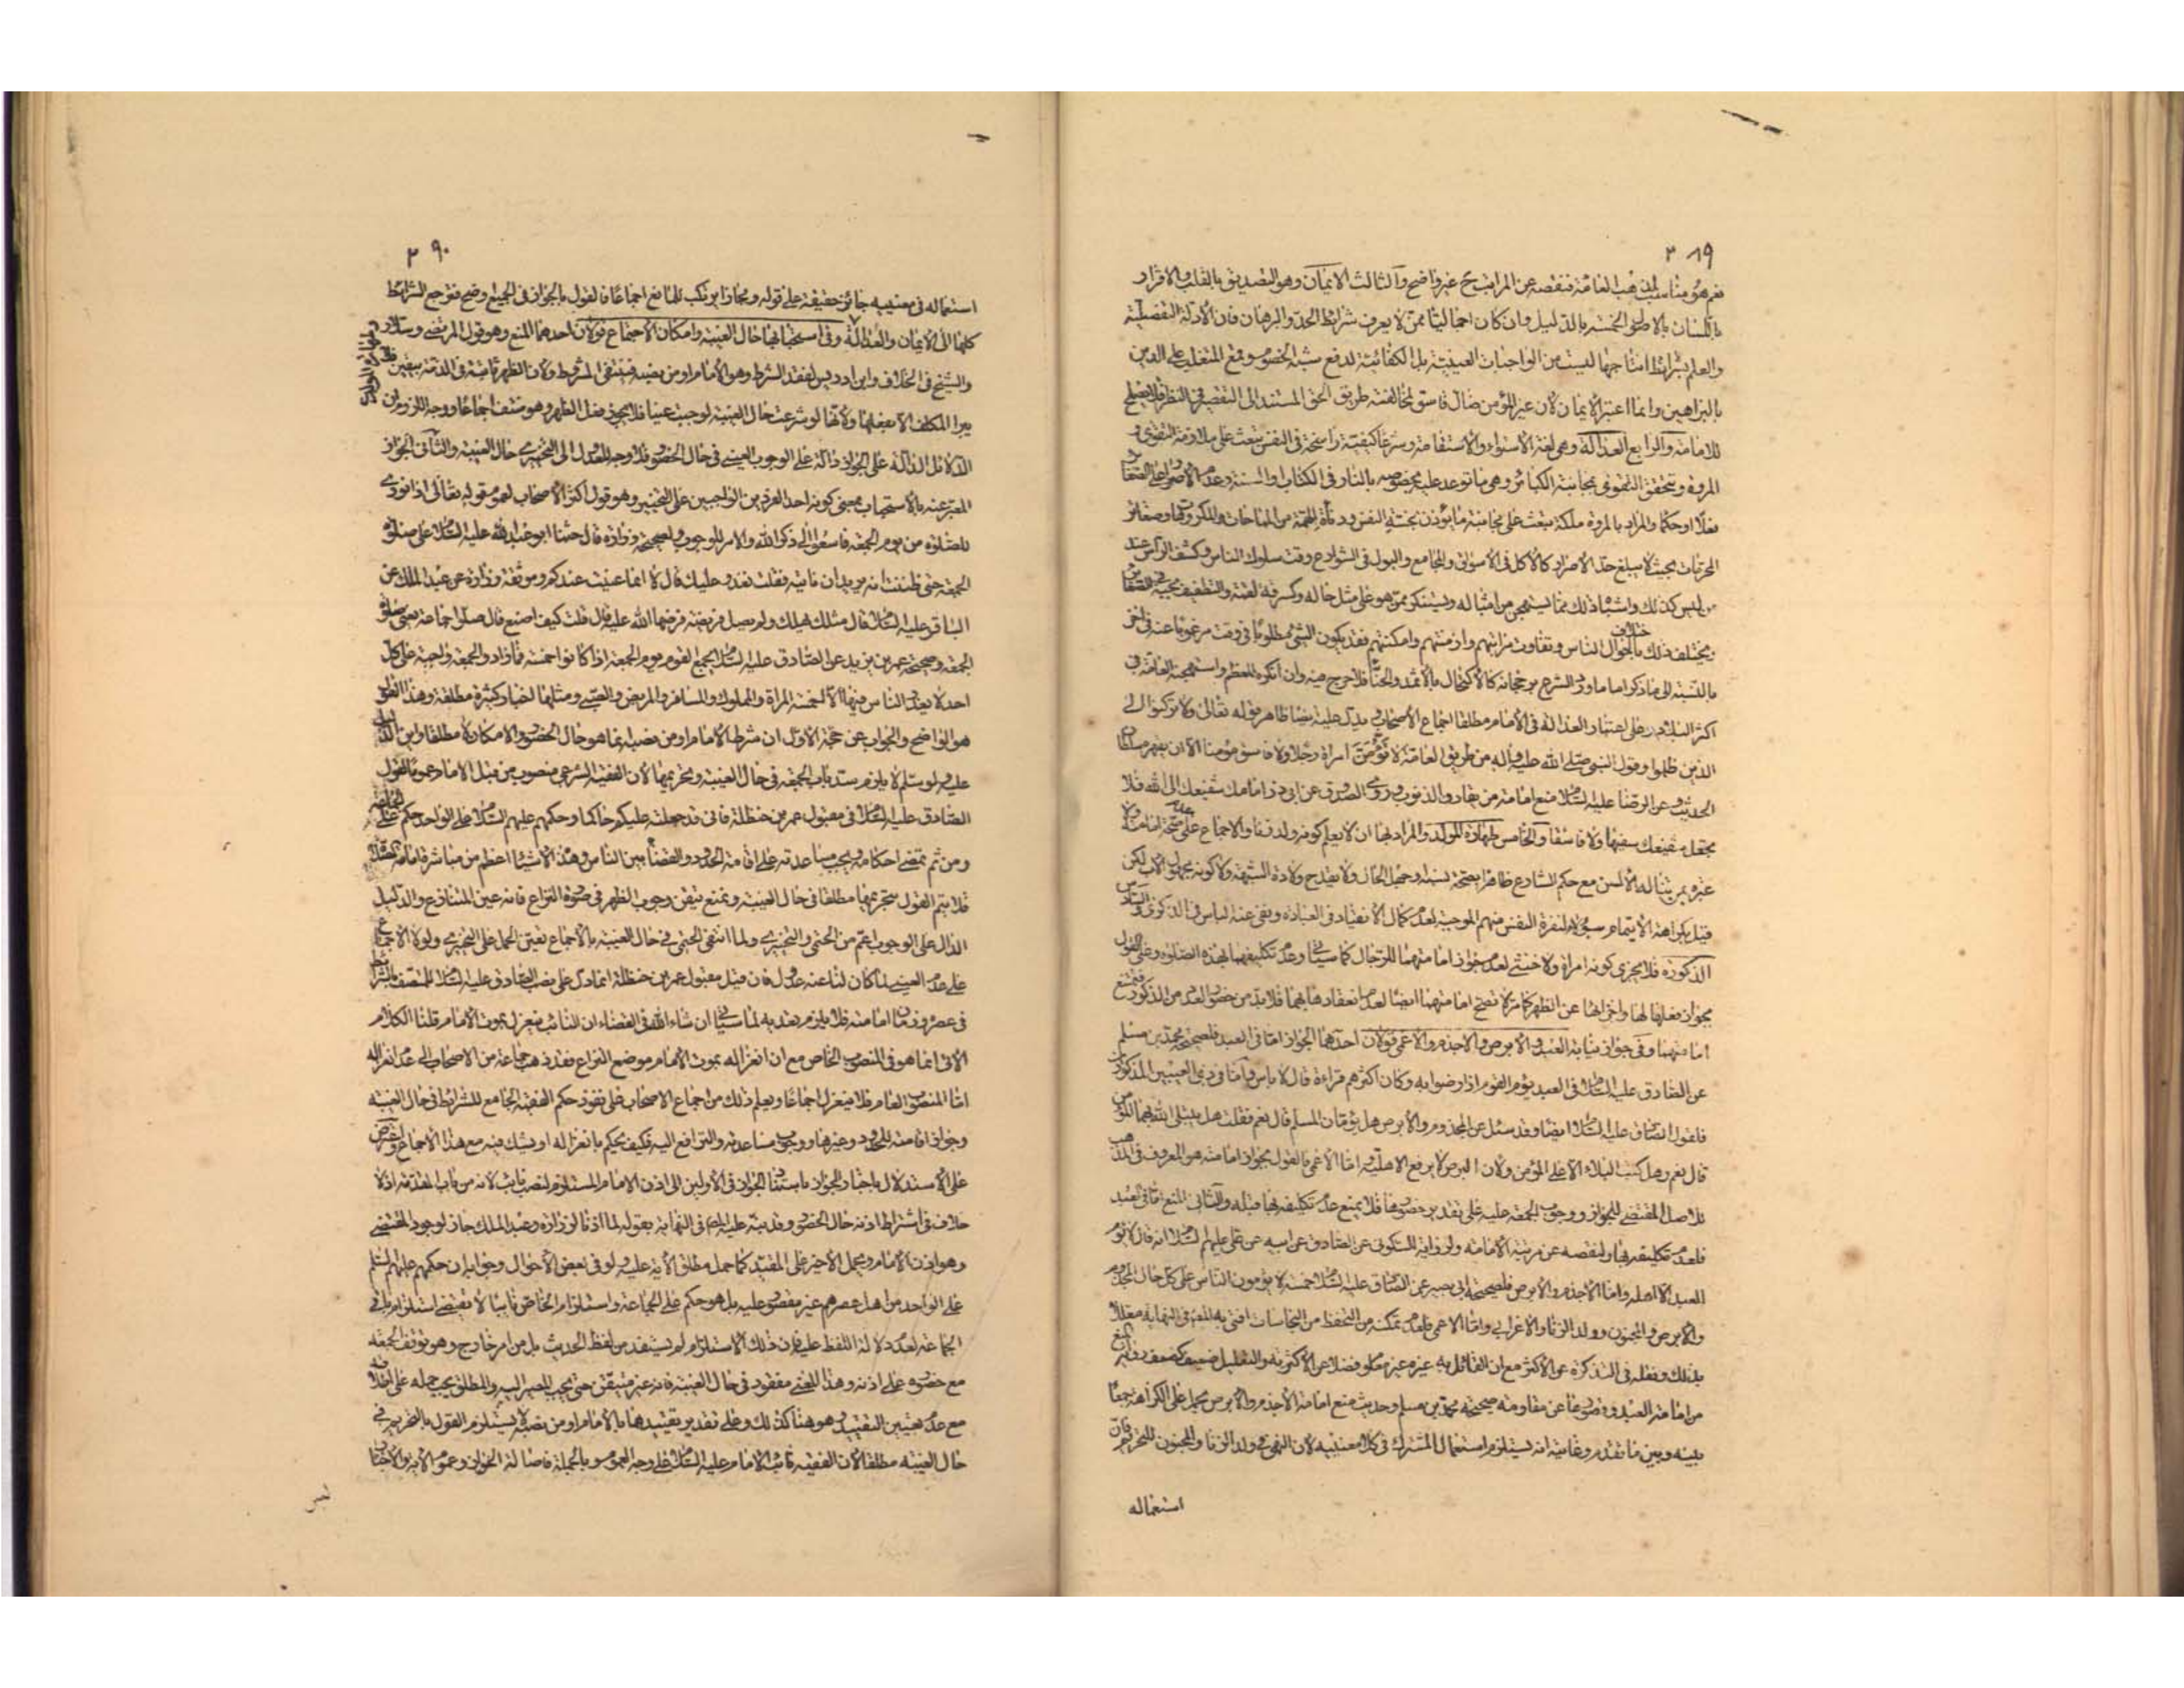 ٣٨٩
نعم هو مناسب لمذهب العامة فنقصه عن المراتب ح غير واضح والثالث الايمان وهو التصديق بالقلب والاقرار
باللسان بالاصول الخمسة بالدليل وان كان اجماليا ممن لا يعرف شرائط الحد والبرهان فان الادلة التفصيلية
والعلم بشرائط انتاجها ليست من الواجبات العينية بل الكفائية لدفع شبه الخصوم ومنع المتغلب على الدين
بالبراهين وانما اعتبر الايمان لان غير المؤمن ضال فاسق لمخالفته طريق الحق المستند الى التقصير في النظر فلا يصلح
للامامة والرابع العدالة وهي لغة الاستواء والاستقامة وشرعا كيفية راسخة في النفس تبعث على ملازمة التقوى و
المروة وتتحقق التقوى بمجانبة الكبائر وهي ما توعد عليه بخصوصه بالنار في الكتاب والسنة وعدم الاصرار على الصغائر
فعلا او حكما والمراد بالمروة ملكة تبعث على مجانبة ما يؤذن بخسة النفس ودناءة الهمة من المباحات والمكروهات وصغائر
المحرمات بحيث لا يبلغ حد الاصرار كالاكل في الاسواق والمجامع والبول في الشوارع وقت سلوك الناس وكشف الراس عند
من ليس كذلك واشباه ذلك مما يستهجن من امثاله ويستنكر ممن هو على مثل حاله وكسرقة لقمة والتطفيف بحبة
ويختلف ذلك باختلاف احوال الناس وتفاوت مراتبهم وازمنتهم وامكنتهم فقد يكون الشئ مطلوبا في وقت مرغوبا عنه في اخر
بالنسبة الى ما ذكر اما ما ورد الشرع برجحانه كالاكتحال بالاثمد والحناء فلا حرج فيه وان انكره المعظم واستهجنه العامة في
اكثر البلاد ويدل على اعتبار العدالة في الامام مطلقا اجماع الاصحاب ويدل عليه ايضا ظاهر قوله تعالى ولا تركنوا الى
الذين ظلموا وقول النبي صلى الله عليه واله من طريق العامة لا تؤمن امراة رجلا ولا فاسق مؤمنا الا ان يقهره سلطان
الحديث وعن الرضا عليه السلام منع امامة من يقارف الذنوب وروى الصدوق عن ابي ذر امامك شفيعك الى الله فلا
تجعل شفيعك سفيها ولا فاسقا والخامس طهارة المولد والمراد بها ان لا يعلم كونه ولد زنا والاجماع على عدم صحة امامته ولا
عبرة بمن تناله الالسن مع حكم الشارع ظاهرا بصحة نسبه وجهل الحال ولا يقدح ولادة الشبهة ولا كونه مجهول الاب لكن
قيل بكراهة الايتمام بهؤلاء لنفرة النفس منهم الموجبة لعدم كمال الانقياد في العبادة ونفى عنه الباس في الذكرى والسادس
الذكورة فلا يجزى كونه امراة ولا خنثى لعدم جواز امامتهما للرجال كما سياتى وعدم تكليفهما بهذه الصلوة وعلى القول
بجواز فعلهما لها واجزائها عن الظهر كما مر لا تصح امامتهما ايضا لعدم انعقادها بهما فلا بد من حضور العدد من الذكور فتمتنع
امامتهما وفى جواز نيابة العبد والابرص والاجذم والاعمى قولان احدهما الجواز اما في العبد فلصحيحة محمد بن مسلم
عن الصادق عليه السلام في العبد يؤم القوم اذا رضوا به وكان اكثرهم قراءة قال لا باس واما في ذوى العيبين المذكورين
فلقول الصادق عليه السلام ايضا وقد سئل عن المجذوم والابرص هل يؤمان المسلم قال نعم فقلت هل يبتلى الله بهما المؤمن
قال نعم وهل كتب البلاء الا على المؤمن ولان البرص لا يرفع الاهلية واما الاعمى فالقول بجواز امامته هو المعروف في المذهب
للاصل المقتضى للجواز ووجوب الجمعة عليه على تقدير حضوره لها فلا يمنع عدم تكليفه بها قبله والثانى المنع اما في العبد
فلعدم تكليفه بها ولنقصه عن مرتبة الامامة ولرواية السكونى عن الصادق عن ابيه عن على عليهم السلام انه قال لا يؤم
العبد الا اهله واما الاجذم والابرص فلصحيحة ابى بصير عن الصادق عليه السلام خمسة لا يؤمون الناس على كل حال المجذوم
والابرص والمجنون وولد الزنا والاعرابى واما الاعمى فلعدم تمكنه من التحفظ من النجاسات افتى به المصنف في النهاية معللا
بذلك ونقله في التذكرة عن الاكثر مع ان القائل به غيره غير معلوم فضلا عن الاكثرية والتعليل ضعيف كضعف رواية المنع
من امامة العبد وقصورها عن مقاومة صحيحة محمد بن مسلم وحديث منع امامة الاجذم والابرص محمول على الكراهة جمعا
بينه وبين ما تقدم وغايته انه يستلزم استعمال المشترك في كلا معنييه لان النهى في ولد الزنا والمجنون للتحريم فان
استعماله
٣٩٠
استعماله في معنييه جائز حقيقة على قوله ومجازا بر تكب للمانع اجماعا فالقول بالجواز في الجميع وضح فمرجع الشرائط
كلها الى الايمان والعدالة وفى استحبابها حال الغيبة وامكان الاجتماع قولان احدهما المنع وهو قول المرتضى وسلار
والشيخ في الخلاف وابن ادريس لفقد الشرط وهو الامام او من نصبه فينتفى المشروط ولان الظهر ثابتة في الذمة بيقين فلا
يبرا المكلف الا بفعلها ولانها لو شرعت حال الغيبة لوجبت عينا فلا يجوز فعل الظهر وهو منتف اجماعا ووجه اللزوم ان
الدلائل الدالة على الجواز دالة على الوجوب العينى في حال الحضور فلا وجه للعدول الى التخييرى حال الغيبة والثانى الجواز
المعبر عنه بالاستحباب بمعنى كونه احد الفردين الواجبين على التخيير وهو قول اكثر الاصحاب لعموم قوله تعالى اذا نودى
للصلوة من يوم الجمعة فاسعوا الى ذكر الله والامر للوجوب ولصحيحة زرارة قال حثنا ابو عبد الله عليه السلام على صلوة
الجمعة حتى ظننت انه يريد ان ناتيه فقلت نغدو عليك فقال لا انما عنيت عندكم وموثقة زرارة عن عبد الملك عن
الباقر عليه السلام قال مثلك يهلك ولم يصل فريضة فرضها الله عليه قال قلت كيف اصنع قال صلوا جماعة يعنى صلوة
الجمعة وصحيحة عمر بن يزيد عن الصادق عليه السلام يجمع القوم يوم الجمعة اذا كانوا خمسة فما زاد والجمعة واجبة على كل
احد لا يعذر الناس فيها الا خمسة المراة والمملوك والمسافر والمريض والصبى ومثلها اخبار كثيرة مطلقة وهذا القول
هو الواضح والجواب عن حجة الاول ان شرط الامام او من نصبه انما هو حال الحضور والامكان لا مطلقا واين الدليل
عليه ولو سلم لا يلزم سد باب الجمعة في حال الغيبة وتحريمها لان الفقيه الشرعى منصوب من قبل الامام عموما لقول
الصادق عليه السلام في مقبول عمر بن حنظلة فانى قد جعلته عليكم حاكما وحكمهم عليهم السلام على الواحد حكم على الجماعة
ومن ثم تمضى احكامه ويجب مساعدته على اقامة الحدود والقضاء بين الناس وهذه الاشياء اعظم من مباشرة امامة الصلوة
فلا يتم القول بتحريمها مطلقا في حال الغيبة ونمنع تيقن وجوب الظهر في صورة النزاع فانه عين المتنازع والدليل
الدال على الوجوب اعم من الحتمى والتخييرى ولما انتفى الحتمى في حال الغيبة بالاجماع تعين الحمل على التخييرى ولولا الاجماع
على عدم العينى لما كان لنا عنه عدول فان قيل مقبول عمر بن حنظلة انما دل على نصب الصادق عليه السلام للمتصف بالشرائط
في عصره وزمان امامته فلا يلزم بعده به لما سياتى ان شاء الله في القضاء ان النائب ينعزل بموت الامام قلنا الكلام
الاتى انما هو في المنصوب الخاص مع ان انعزاله بموت الامام موضع النزاع فقد ذهب جماعة من الاصحاب الى عدم انعزاله
اما المنصوب العام فلا ينعزل اجماعا ويعلم ذلك من اجماع الاصحاب على نفوذ حكم الفقيه الجامع للشرائط في حال الغيبة
وجواز اقامته للحدود وغيرها ووجوب مساعدته والترافع اليه فكيف يحكم بانعزاله او يشك فيه مع هذا الاجماع
على الاستدلال باخبار الجواز باستناد الجواز في الاولين الى اذن الامام المستلزم لنصب نائب لانه من باب المقدمة اذ لا
خلاف في اشتراط اذنه حال الحضور وقد نبه عليه المصنف في النهاية بقوله لما اذنا لزرارة وعبد الملك جاز لوجود المقتضى
وهو اذن الامام ويحمل الاخير على المقيد كما حمل مطلق الاية عليه ولو في بعض الاحوال وجوابه ان حكمهم عليهم السلام
على الواحد من اهل عصرهم غير مقصور عليه بل هو حكم على الجماعة واستلزام الخاص نائبا لا يقتضى استلزام باقى
الجماعة لعدم دلالة اللفظ عليه فان ذلك الاستلزام لم يستفد من لفظ الحديث بل من امر خارج وهو توقف الجمعة
مع حضوره على اذنه وهذا المعنى مفقود في حال الغيبة فانه غير متيقن حتى يجب المصير اليه والمطلق يجب حمله على اطلاقه
مع عدم تعيين التقييد وهو هنا كذلك وعلى تقدير تقييدها بالامام او من نصبه لا يستلزم القول بالتحريم في
حال الغيبة مطلقا لان الفقيه نائب الامام عليه السلام على وجه العموم وبالجملة فاصالة الجواز وعموم الاية والاخبار